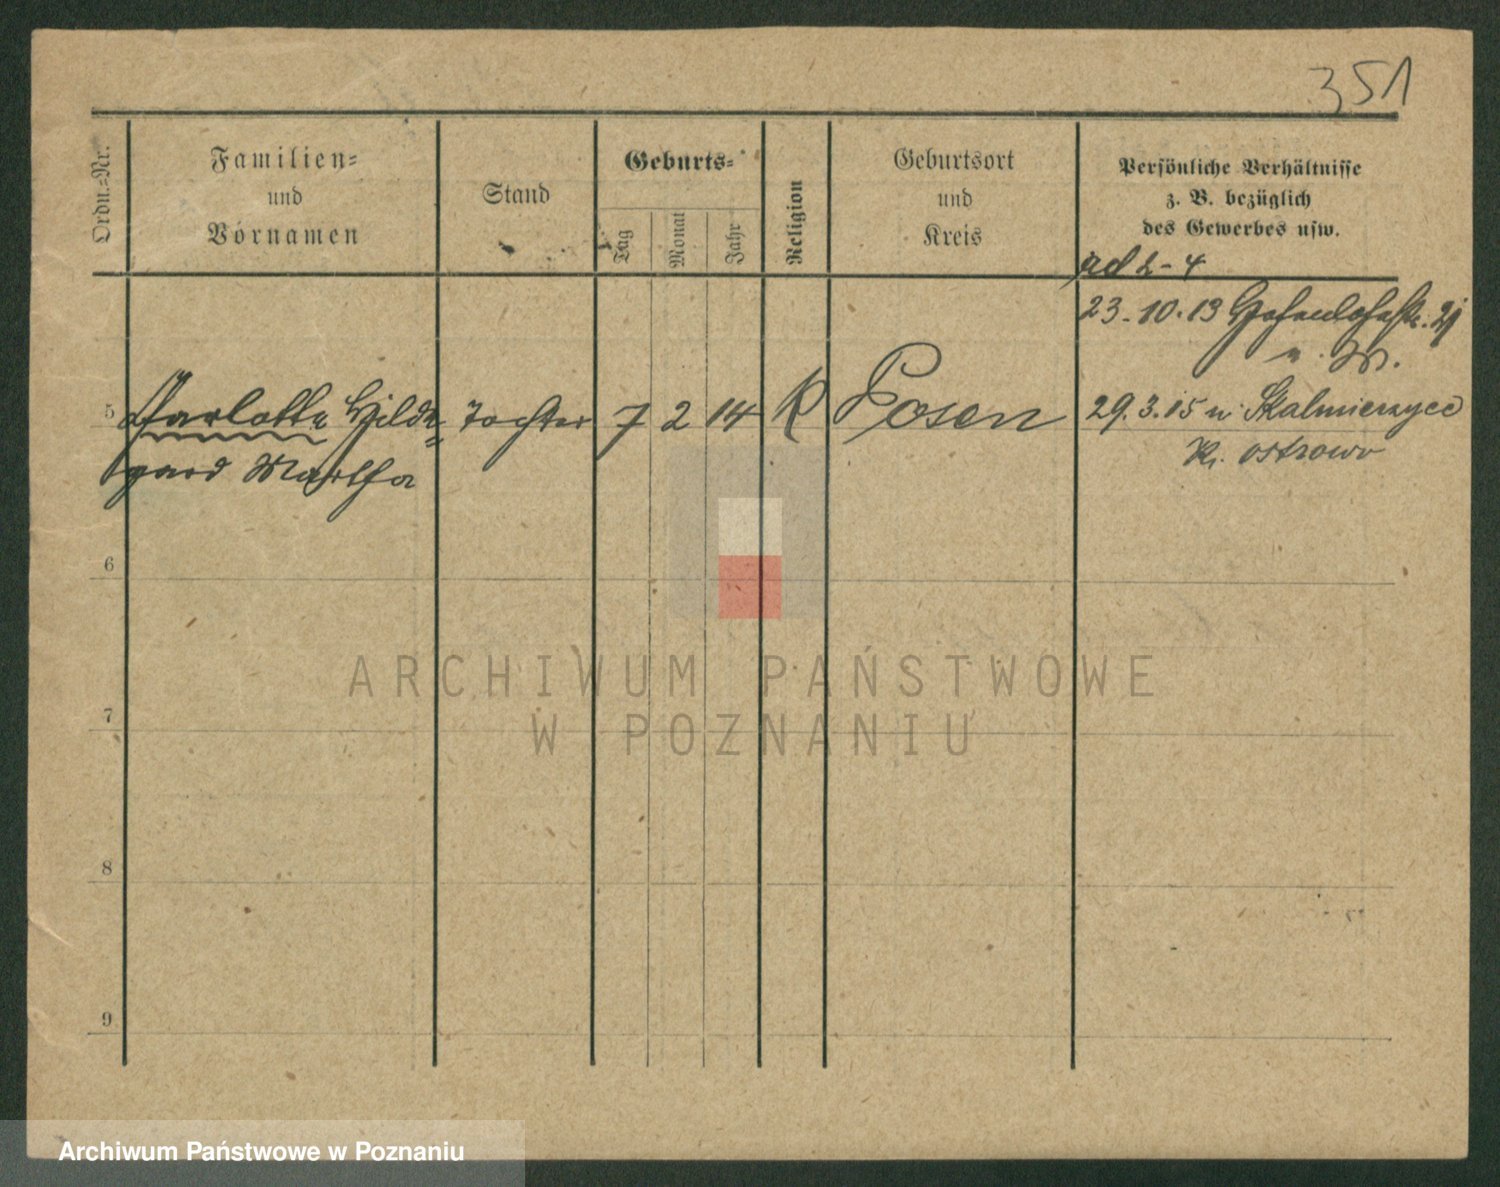 351
Ordn.-Nr.
Familien-
und
Vornamen
Stand
Geburts-
Tag
Monat
Jahr
Religion
Geburtsort
und
Kreis
Persönliche Verhältnisse
z. B. bezüglich
des Gewerbes usw.
ad 2-4
23.10.13 Hohenlohestr.
n. W.
5 Charlotte Hilde= Tochter 7 2 14 K Posen 29.3.15 n. Skalmierzyce
gard Martha Kr. Ostrowo
6
7
8
9
ARCHIWUM PAŃSTWOWE
W POZNANIU
Archiwum Państwowe w Poznaniu